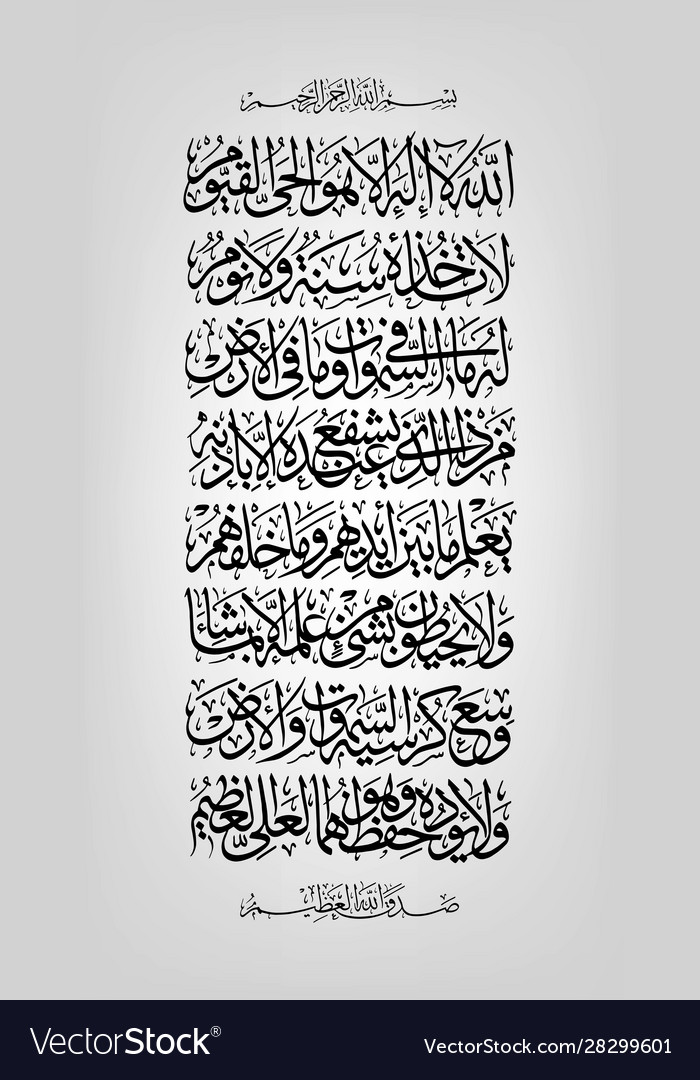 بسم الله الرحمن الرحيم
الله لا إله إلا هو الحي القيوم
لا تأخذه سنة ولا نوم
له ما في السموات وما في الأرض
من ذا الذي يشفع عنده إلا بإذنه
يعلم ما بين أيديهم وما خلفهم
ولا يحيطون بشيء من علمه إلا بما شاء
وسع كرسيه السموات والأرض
ولا يؤوده حفظهما وهو العلي العظيم
صدق الله العظيم
VectorStock® VectorStock.com/28299601